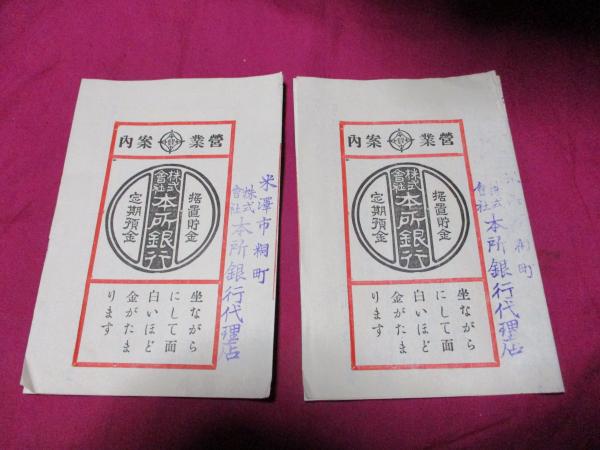 營業案內
株式會社
本所銀行
据置貯金
定期預金
坐ながら
にして面
白いほど
金がたま
ります
米澤市桐町
株式會社
本所銀行代理店
營業案內
株式會社
本所銀行
据置貯金
定期預金
坐ながら
にして面
白いほど
金がたま
ります
町
株式會社
本所銀行代理店